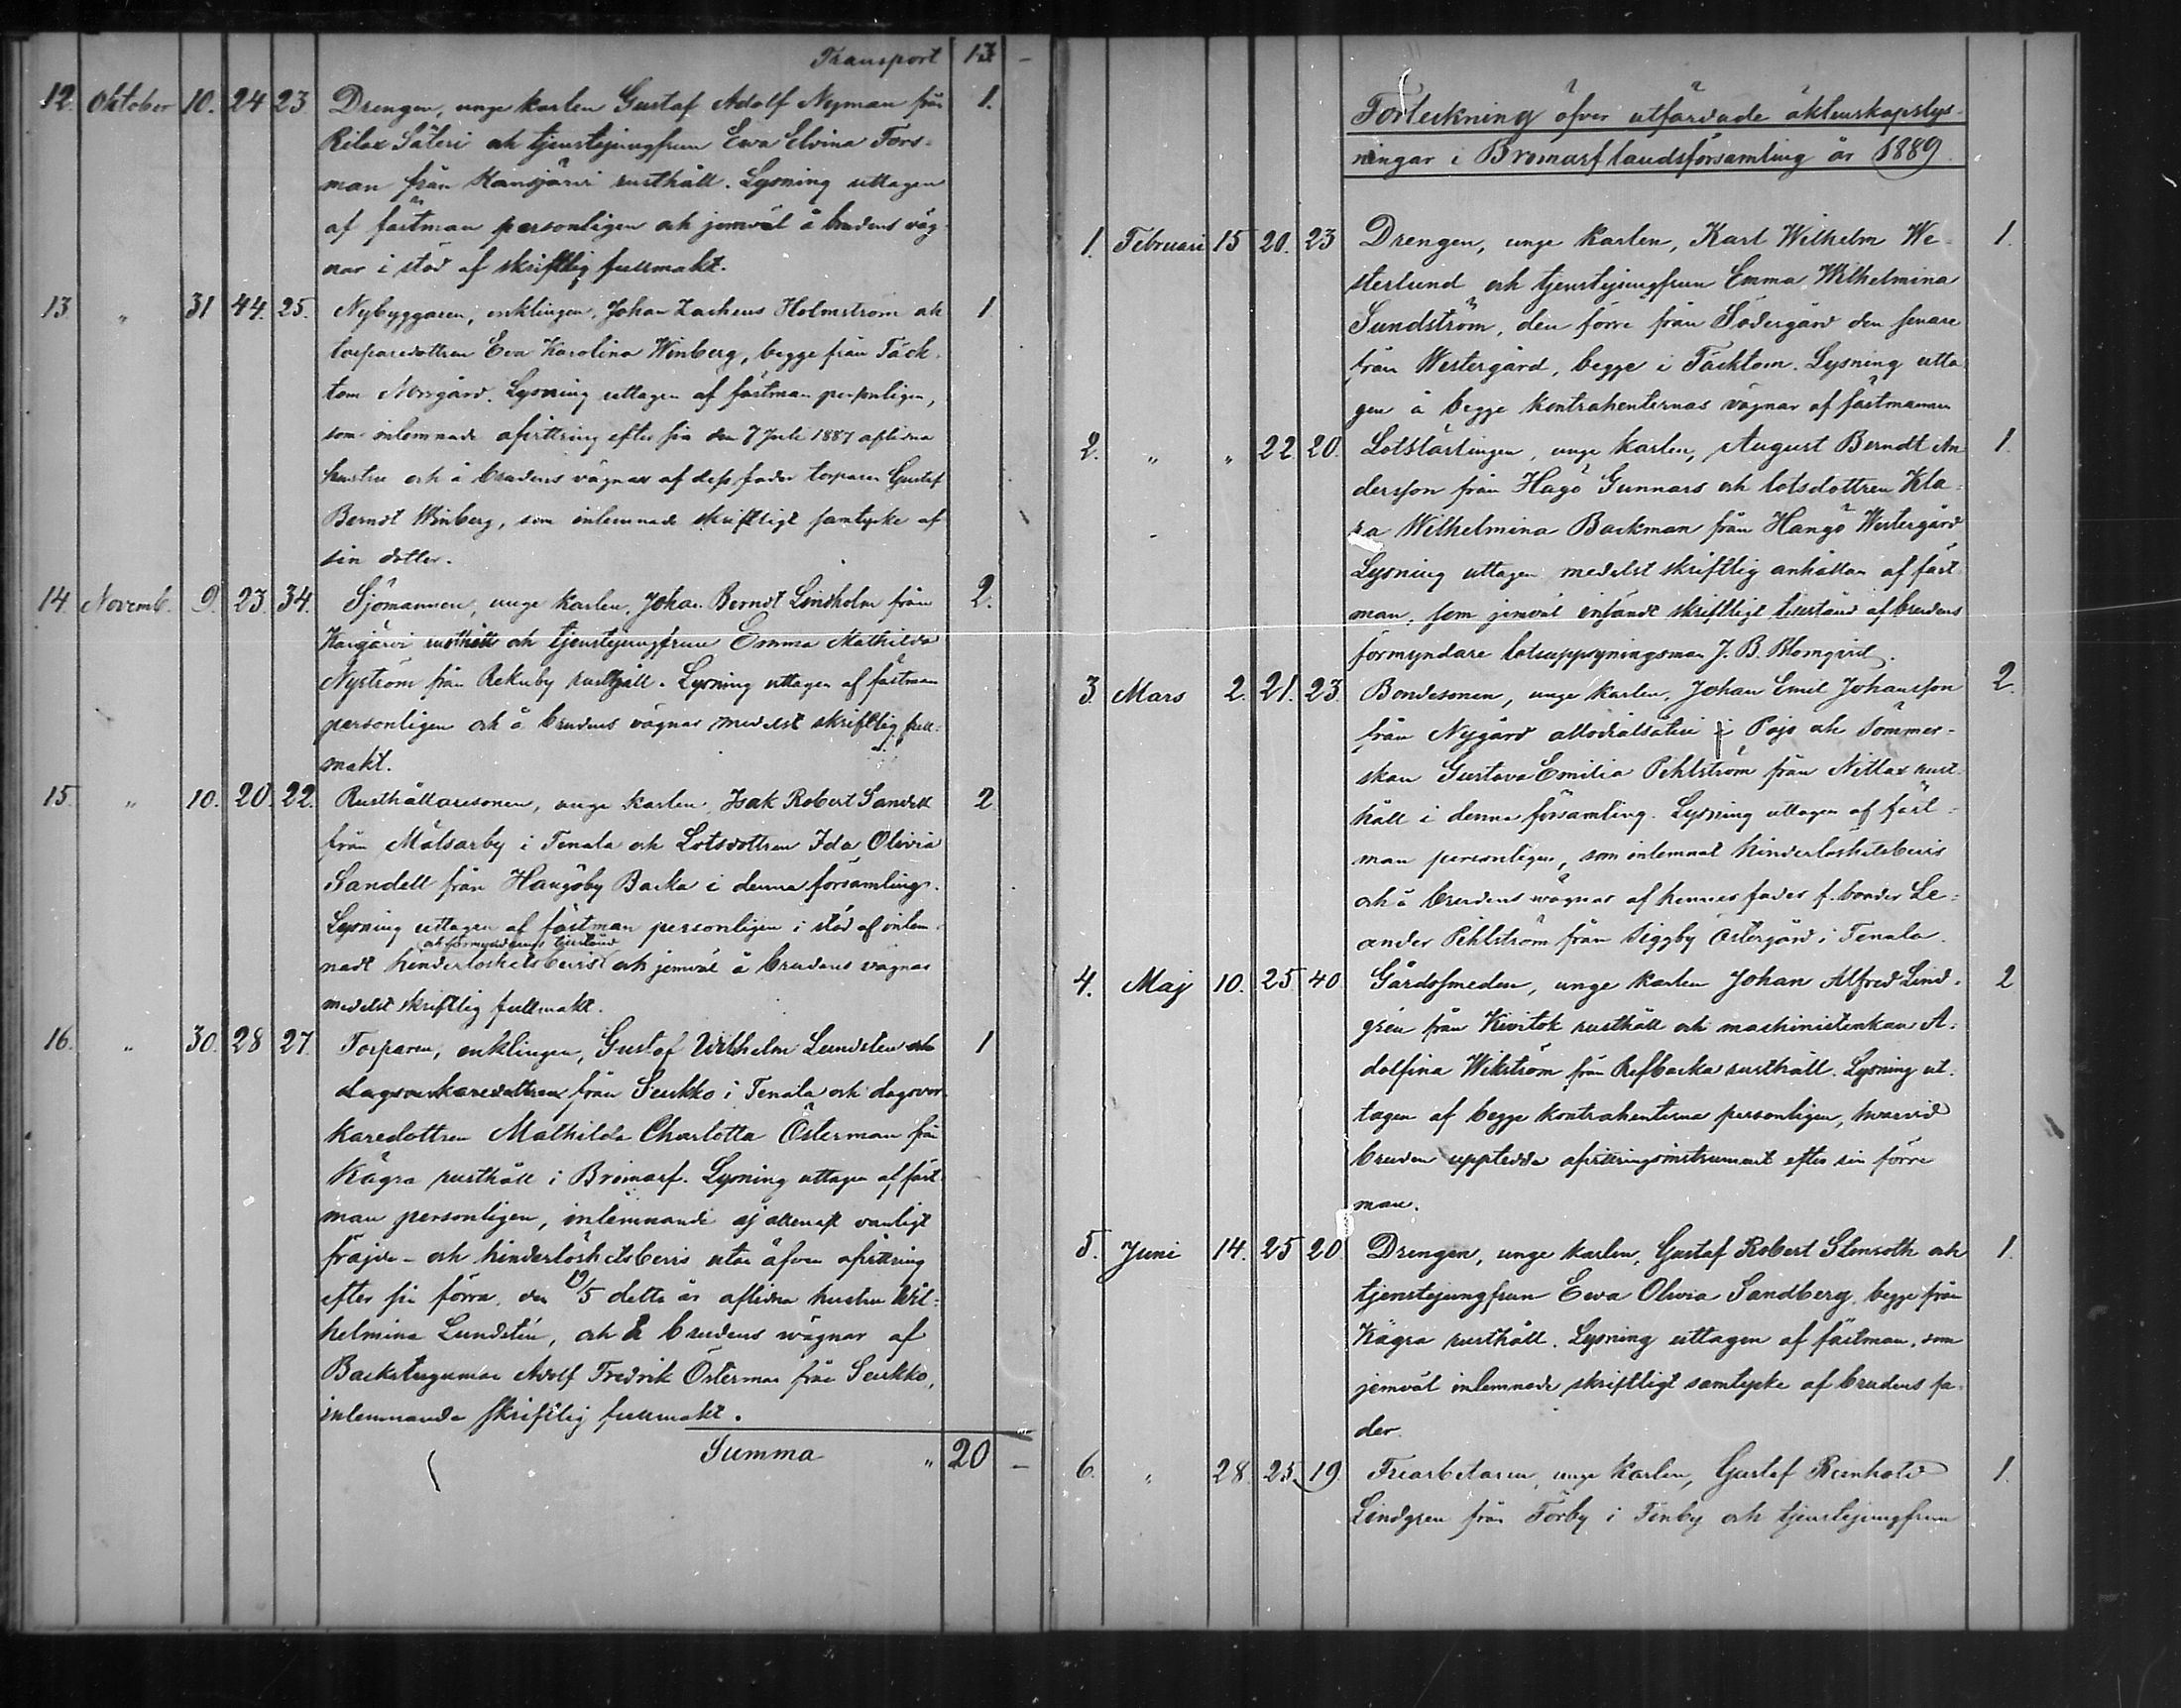 Transport 13 –
12. Oktober 10. 24 23. Drengen, unge karlen Gustaf Adolf Nyman från 1.
Rilax Säteri och tjenstejungfrun Ewa Elvina Fors-
man från Kansjärvi rusthåll. Lysning uttagen
af fästman personligen och jemväl å brudens väg-
nar i stöd af skriftlig fullmakt.
13. „ 31 44. 25. Nybyggaren, enklingen, Johan Zacheus Holmström och 1
torparedottren Eva Karolina Winberg, begge från Täck-
tom Norrgård. Lysning uttagen af fästman personligen,
som inlemnade afvittring efter sin den 7 Juli 1887 aflidna
hustru och å brudens vägnar af dess fader torparen Gustaf
Berndt Winberg, som inlemnade skriftligt samtycke af
sin dotter.
14. Novemb. 9. 23. 34. Sjömannen, unge karlen, Johan Berndt Lindholm från 2.
rusthåll och tjenstejungfrun Emma Mathilda
Nyström från Rekuby rusthåll. Lysning uttagen af fästman
personligen och å brudens vägnar medelst skriftlig full-
makt.
15. „ 10. 20. 22. Rusthållaresonen, unge karlen, Isak Robert Sandell 2
från Målsarby i Tenala och Lotsdottren Ida Olivia
Sandell från Hangöby Backa i denna församling.
Lysning uttagen af fästman personligen i stöd af inlem-
och förmyndarens tillstånd
nadt hinderlöshetsbevis och jemväl å brudens vägnar
medelst skriftlig fullmakt.
16. „ 30. 28 27. Torparen, enklingen, Gustaf Wilhelm Lundsten och 1
dagsverkaredottren från Seukko i Tenala och dagsver-
karedottren Mathilda Charlotta Österman från
Kägra rusthåll i Bromarf. Lysning uttagen af fäst-
man personligen, inlemnande ej allenast vanligt
fräjde- och hinderlöshetsbevis utan äfven afvittring
efter sin förra, den 19/5 detta år aflidna hustru Wil-
helmina Lundstén, och å brudens vägnar af
Backstuguman Adolf Fredrik Österman från Seukko,
inlemnande skriftlig fullmakt.
Summa „ 20 –
Förteckning öfver utfärdade äktenskapslys-
ningar i Bromarf landsförsamling år 1889
1. Februari 15 20. 23 Drengen, unge karlen, Karl Wilhelm We- 1.
sterlund och tjenstejungfrun Emma Wilhelmina
Sundström, den förre från Södergård den senare
från Westergård, begge i Täcktom. Lysning utta-
gen å begge kontrahenternas vägnar af fästmannen
2. „ „ 22. 20. Lotslärlingen, unge karlen, August Berndt An- 1.
dersson från Hagö Gunnars och lotsdottren Kla-
ra Wilhelmina Backman från Hangö Westergård
Lysning uttagen medelst skriftlig anhållan af fäst-
man, som jemväl insändt skriftligt tillstånd af brudens
förmyndare lotsuppsyningsman J. B. Blomqvist.
3. Mars 2. 21. 23. Bondesonen, unge karlen, Johan Emil Johansson 2.
från Nygård allodialsäteri i Pojo och sömmer-
skan Gustava Emilia Pehlström från Nittax rust-
håll i denna församling. Lysning uttagen af fäst-
man personligen, som inlemnat hinderlöshetsbevis
och å brudens vägnar af hennes fader f. bonden Le-
ander Pihlström från Siggby Östergård i Tenala.
4. Maj 10. 25 40 Gårdssmeden, unge karlen Johan Alfred Lind- 2
grén från Kivitok rusthåll och maschinistenkan A-
dolfina Wikström från Refbacka rusthåll. Lysning ut-
tagen af begge kontrahenterna personligen, hvarvid
bruden uppteddе afvittringsinstrument efter sin förre
man.
5. Juni 14. 25 20. Drengen, unge karlen, Gustaf Robert Stenroth och 1.
tjenstejungfrun Ewa Olivia Sandberg, begge från
Kägra rusthåll. Lysning uttagen af fästman, som
jemväl inlemnade skriftligt samtycke af brudens fa-
der.
6. „ 28. 25. 19 Friarbetaren, unge karlen, Gustaf Reinhold 1.
Lindgren från Förby i Finby och tjenstejungfrun